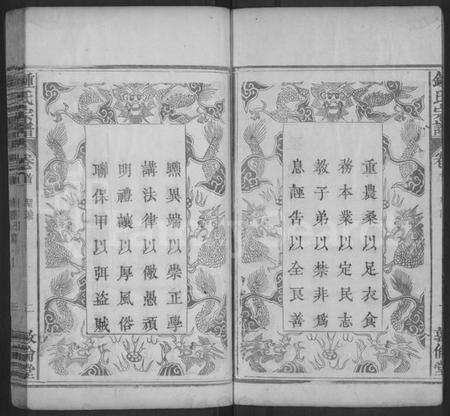 鍾氏宗譜
卷
敦倫堂
重農桑以足衣食
務本業以定民志
教子弟以禁非爲
息誣告以全良善
黜異端以崇正學
講法律以儆愚頑
明禮讓以厚風俗
聯保甲以弭盜賊
鍾氏宗譜
卷首
敦倫堂